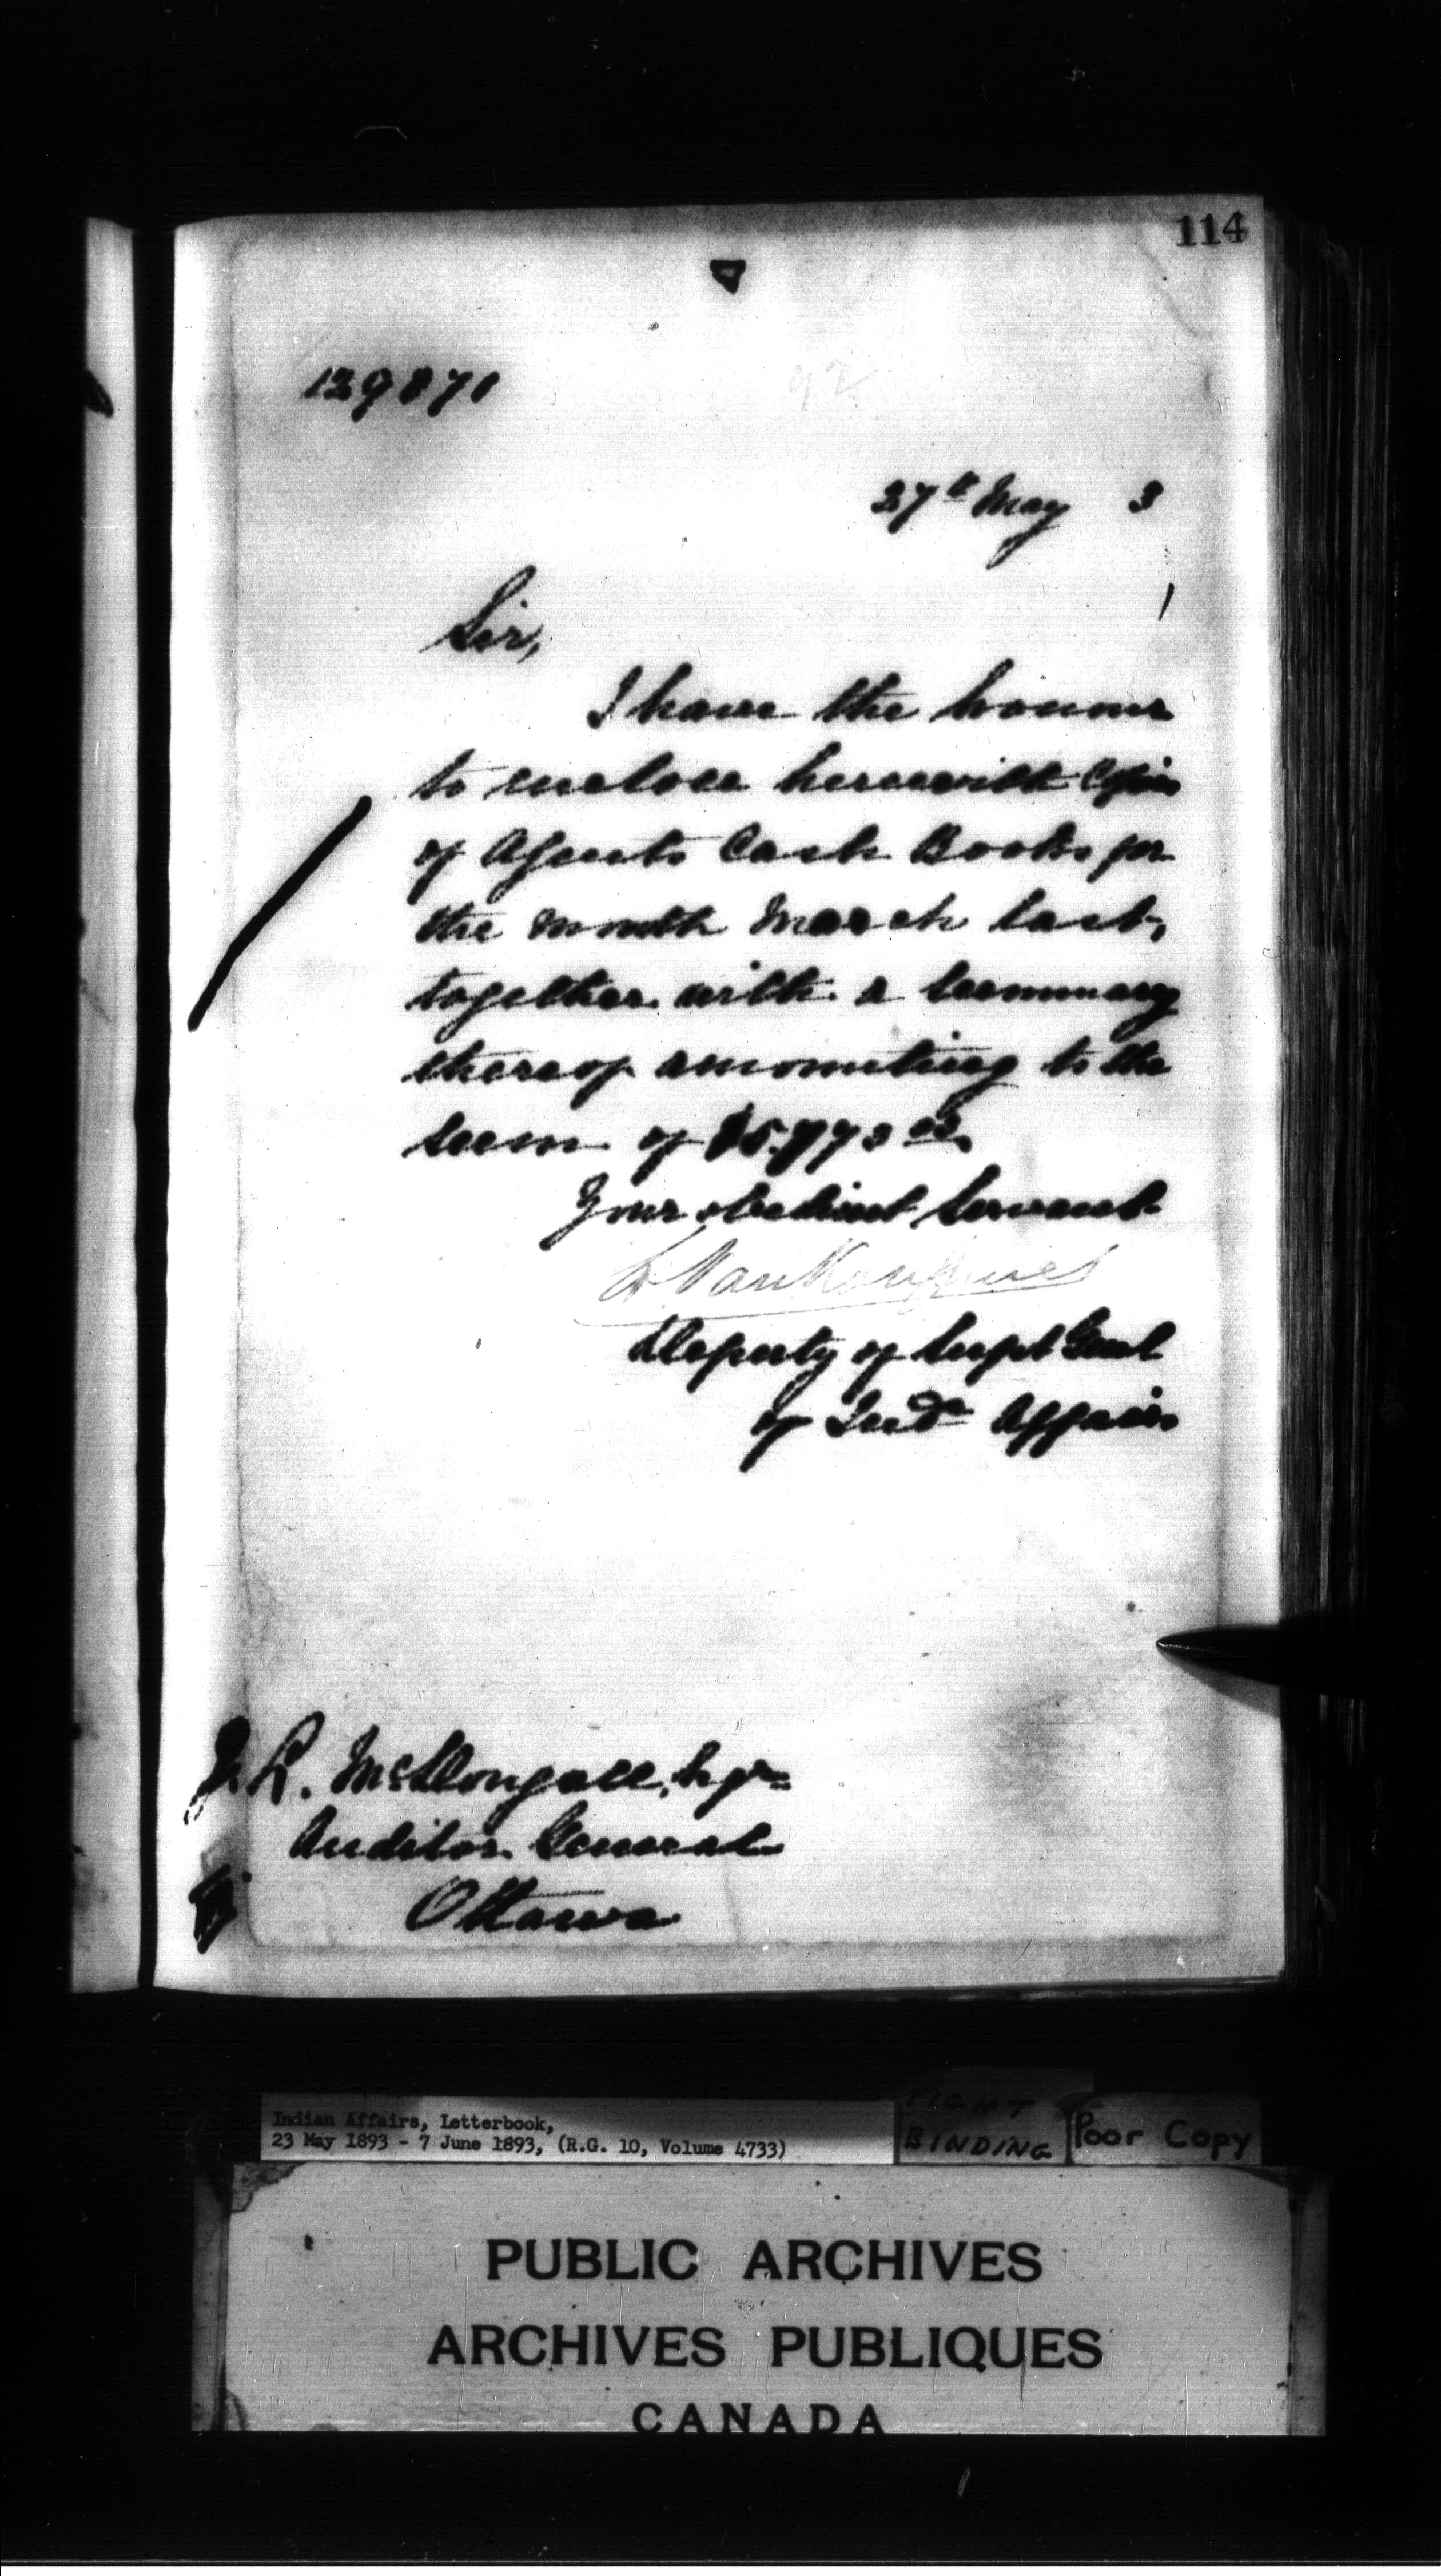 114
92
129871
27th May 3
Sir,
I have the honour
to enclose herewith Copies
of Agents Cash Books for
the month March last,
together with a summary
thereof amounting to the
sum of
Your obedient servant
L. VanKoughnet
Deputy of Supt Genl
of Indn Affairs
J. L. McDougall, Esqre
Auditor General
Ottawa
Indian Affairs, Letterbook,
23 May 1893 - 7 June 1893, (R.G. 10, Volume 4733)
TIGHT
BINDING
Poor Copy
PUBLIC ARCHIVES
ARCHIVES PUBLIQUES
CANADA